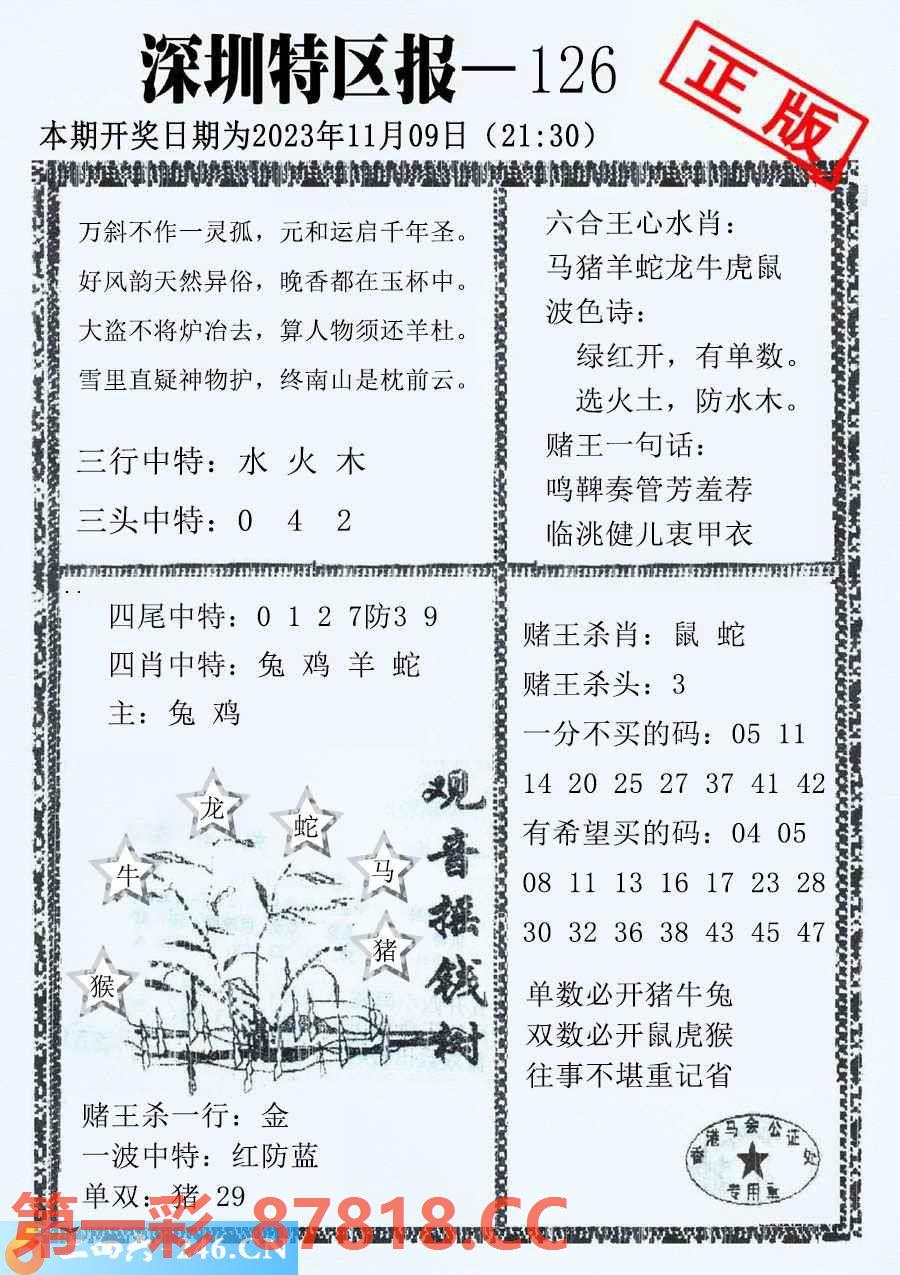 深圳特区报—126
正版
本期开奖日期为2023年11月09日（21:30）
万斜不作一灵孤，元和运启千年圣。
好风韵天然异俗，晚香都在玉杯中。
大盗不将炉冶去，算人物须还羊杜。
雪里直疑神物护，终南山是枕前云。
三行中特：水 火 木
三头中特：0 4 2
六合王心水肖：
马猪羊蛇龙牛虎鼠
波色诗：
绿红开，有单数。
选火土，防水木。
赌王一句话：
鸣鞞奏管芳羞荐
临洮健儿衷甲衣
四尾中特：0 1 2 7防3 9
四肖中特：兔 鸡 羊 蛇
主：兔 鸡
龙
蛇
牛
马
猪
猴
观音摇钱树
赌王杀一行：金
一波中特：红防蓝
单双：猪 29
赌王杀肖：鼠 蛇
赌王杀头：3
一分不买的码：05 11
14 20 25 27 37 41 42
有希望买的码：04 05
08 11 13 16 17 23 28
30 32 36 38 43 45 47
单数必开猪牛兔
双数必开鼠虎猴
往事不堪重记省
香港马会公证处
专用章
第一彩 87818.CC
246.CN